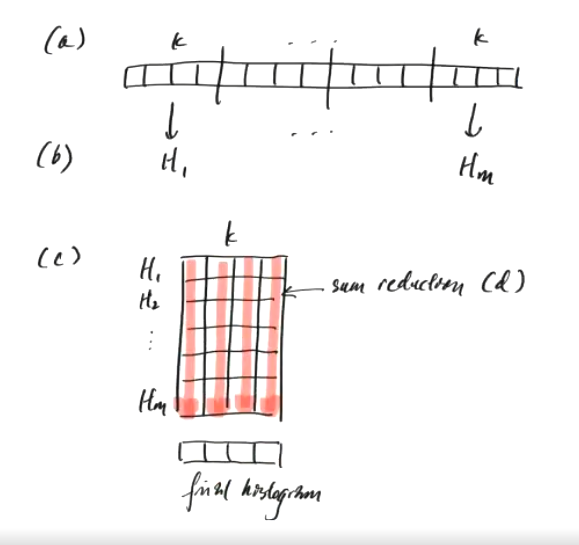 (a) k ... k
(b) H₁ ... Hm
k
(c) H₁
H₂
⋮
Hm
sum reduction (d)
final histogram